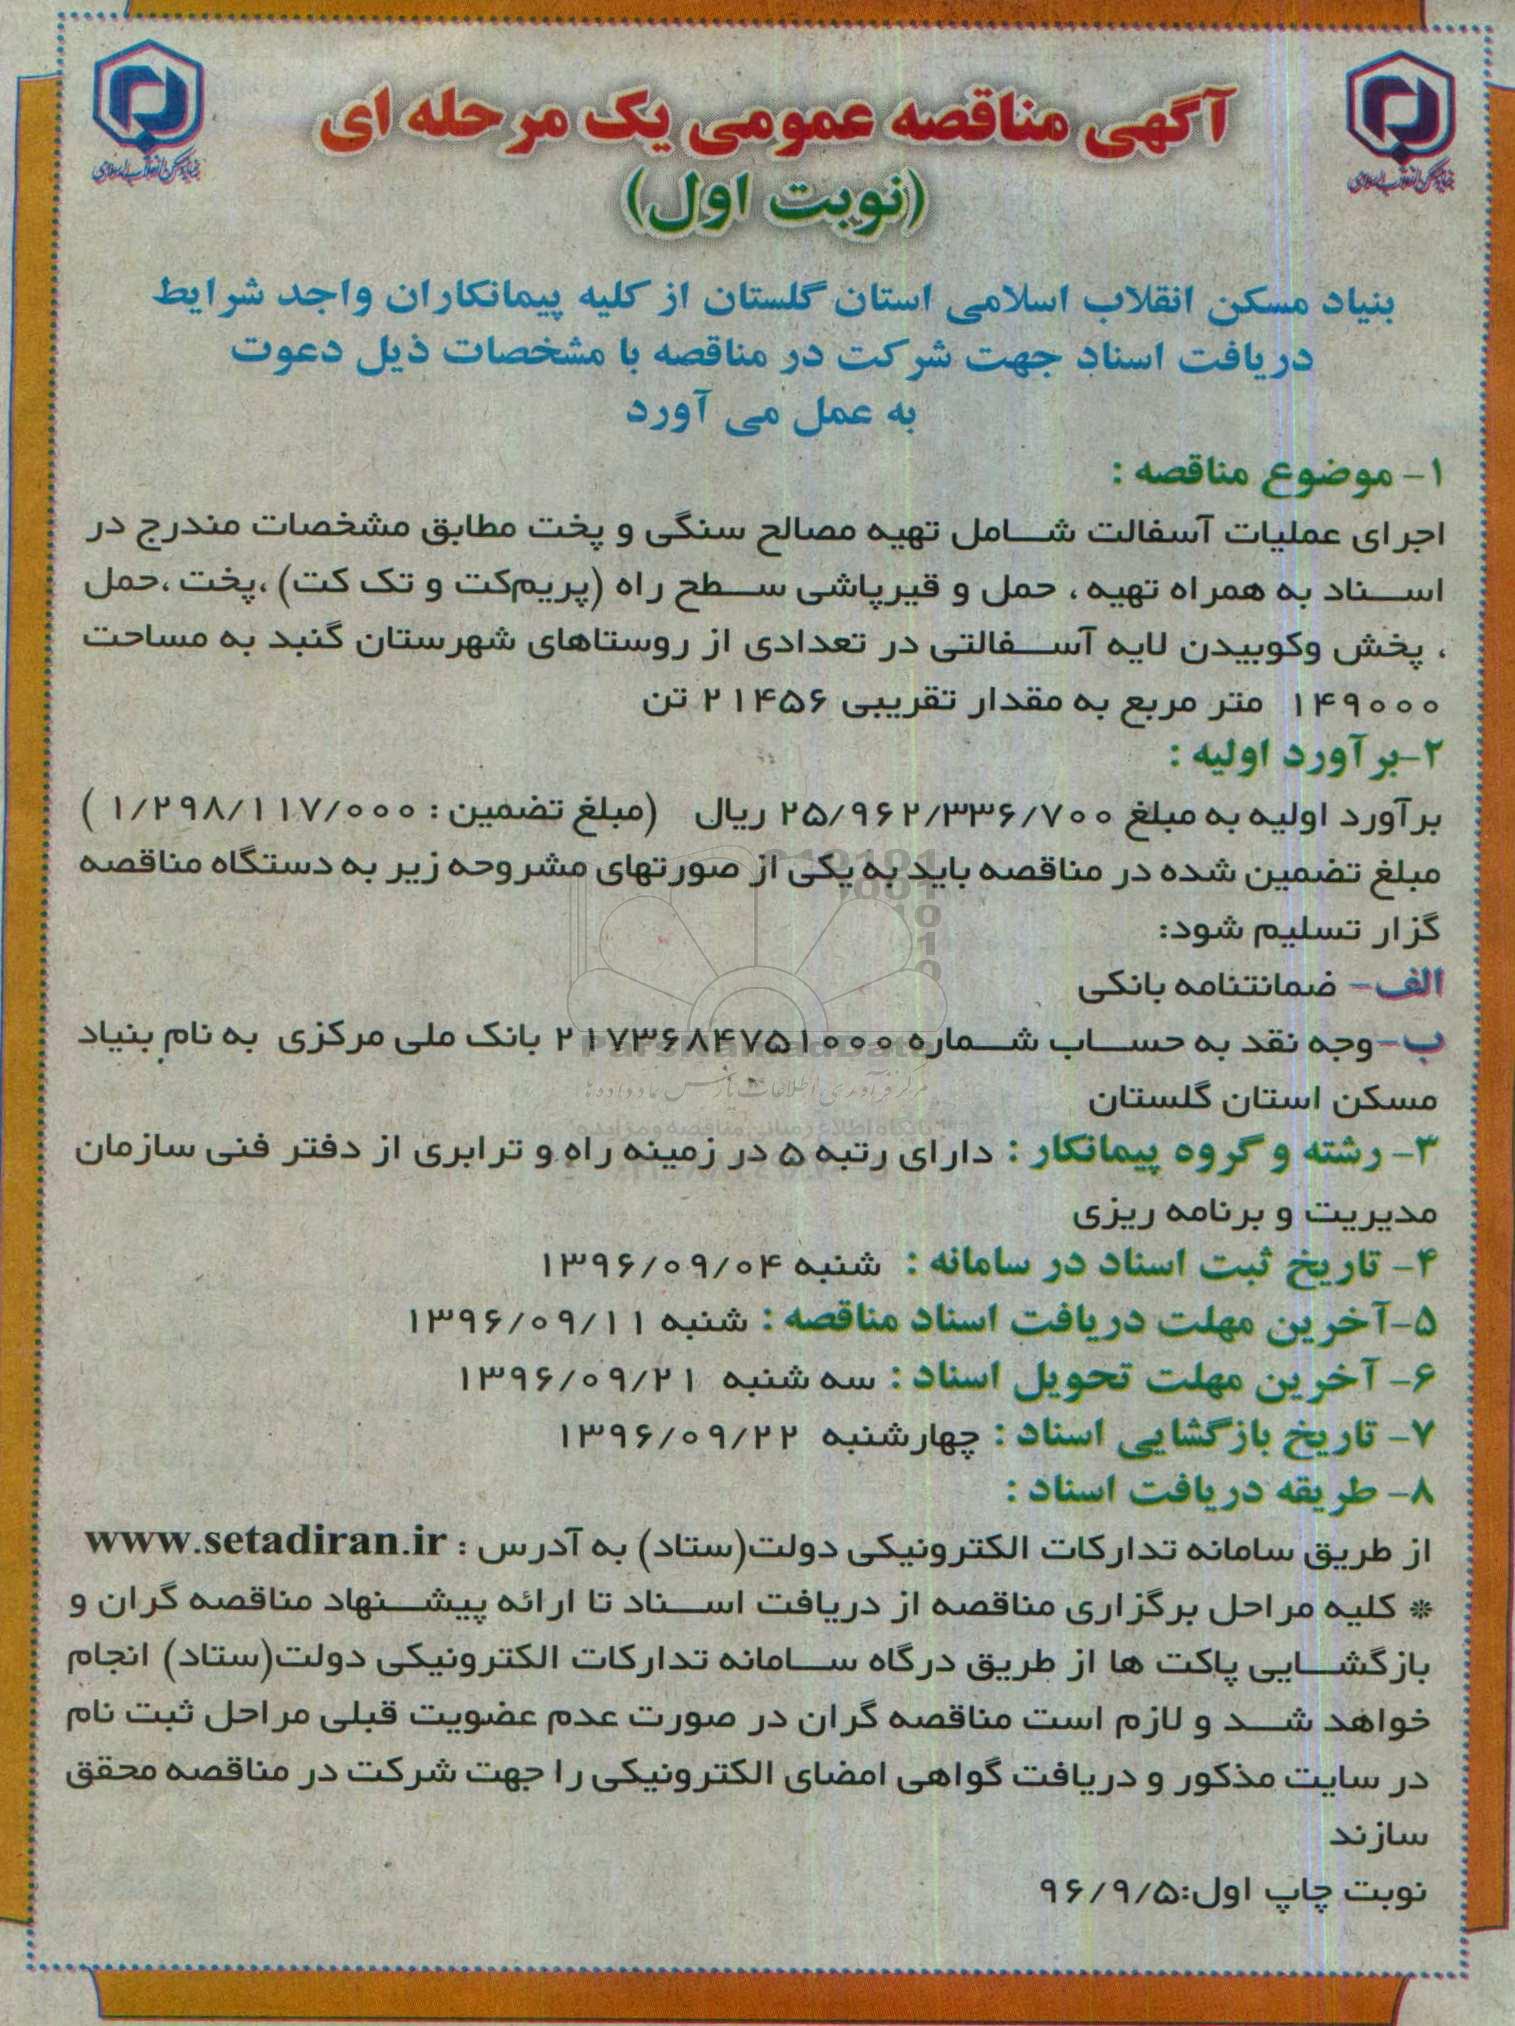 آگهی مناقصه عمومی یک مرحله ای
(نوبت اول)
بنیاد مسکن انقلاب اسلامی
بنیاد مسکن انقلاب اسلامی
بنیاد مسکن انقلاب اسلامی استان گلستان از کلیه پیمانکاران واجد شرایط
دریافت اسناد جهت شرکت در مناقصه با مشخصات ذیل دعوت
به عمل می آورد
۱- موضوع مناقصه :
اجرای عملیات آسفالت شامل تهیه مصالح سنگی و پخت مطابق مشخصات مندرج در
اسناد به همراه تهیه ، حمل و قیرپاشی سطح راه (پریم‌کت و تک کت) ،پخت ،حمل
، پخش وکوبیدن لایه آسفالتی در تعدادی از روستاهای شهرستان گنبد به مساحت
۱۴۹۰۰۰ متر مربع به مقدار تقریبی ۲۱۴۵۶ تن
۲-برآورد اولیه :
برآورد اولیه به مبلغ ۲۵/۹۶۲/۳۳۶/۷۰۰ ریال (مبلغ تضمین : ۱/۲۹۸/۱۱۷/۰۰۰ )
مبلغ تضمین شده در مناقصه باید به یکی از صورتهای مشروحه زیر به دستگاه مناقصه
گزار تسلیم شود:
الف- ضمانتنامه بانکی
ب-وجه نقد به حساب شماره ۲۱۷۳۶۸۴۷۵۱۰۰۰ بانک ملی مرکزی به نام بنیاد
مسکن استان گلستان
۳- رشته و گروه پیمانکار : دارای رتبه ۵ در زمینه راه و ترابری از دفتر فنی سازمان
مدیریت و برنامه ریزی
۴- تاریخ ثبت اسناد در سامانه : شنبه ۱۳۹۶/۰۹/۰۴
۵-آخرین مهلت دریافت اسناد مناقصه : شنبه ۱۳۹۶/۰۹/۱۱
۶- آخرین مهلت تحویل اسناد : سه شنبه ۱۳۹۶/۰۹/۲۱
۷- تاریخ بازگشایی اسناد : چهارشنبه ۱۳۹۶/۰۹/۲۲
۸- طریقه دریافت اسناد :
از طریق سامانه تدارکات الکترونیکی دولت(ستاد) به آدرس : www.setadiran.ir
* کلیه مراحل برگزاری مناقصه از دریافت اسناد تا ارائه پیشنهاد مناقصه گران و
بازگشایی پاکت ها از طریق درگاه سامانه تدارکات الکترونیکی دولت(ستاد) انجام
خواهد شد و لازم است مناقصه گران در صورت عدم عضویت قبلی مراحل ثبت نام
در سایت مذکور و دریافت گواهی امضای الکترونیکی را جهت شرکت در مناقصه محقق
سازند
نوبت چاپ اول:۹۶/۹/۵